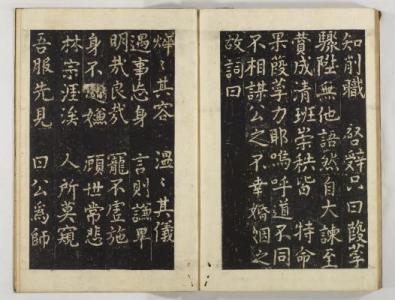 知削職　公辭只曰葭莩
驟陞無他語然自大諫至
貲成清班崇秩皆　特命
果葭莩力耶嗚呼道不同
不相謀公之不幸婚姻之
故詞曰
燁々其容　溫々其儀
遇事忘身　言則謙卑
明哉良哉　寵不虛施
身不　嫌　顧世常悲
林宗涯涘　人所莫窺
吾服先見　曰公為師